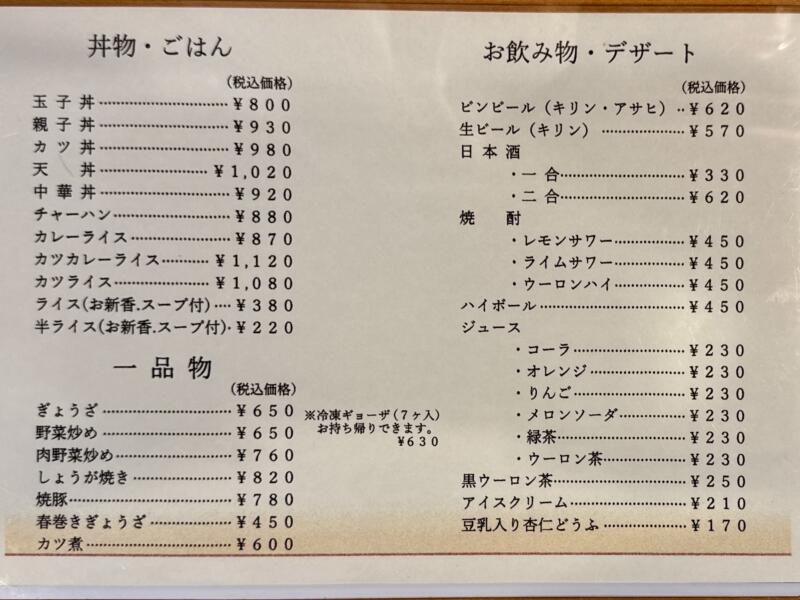 丼物・ごはん
(税込価格)
玉子丼…………………………¥800
親子丼…………………………¥930
カツ丼…………………………¥980
天　丼……………………¥1,020
中華丼…………………………¥920
チャーハン……………………¥880
カレーライス…………………¥870
カツカレーライス………¥1,120
カツライス………………¥1,080
ライス(お新香.スープ付)‥‥¥380
半ライス(お新香.スープ付)‥¥220
一品物
(税込価格)
ぎょうざ………………………¥650
※冷凍ギョーザ(7ヶ入)
お持ち帰りできます。
¥630
野菜炒め………………………¥650
肉野菜炒め……………………¥760
しょうが焼き…………………¥820
焼豚……………………………¥780
春巻きぎょうざ………………¥450
カツ煮…………………………¥600
お飲み物・デザート
(税込価格)
ビンビール（キリン・アサヒ）‥¥620
生ビール（キリン）………………¥570
日本酒
・一合………………………¥330
・二合………………………¥620
焼　酎
・レモンサワー……………¥450
・ライムサワー……………¥450
・ウーロンハイ……………¥450
ハイボール………………………¥450
ジュース
・コーラ……………………¥230
・オレンジ…………………¥230
・りんご……………………¥230
・メロンソーダ……………¥230
・緑茶………………………¥230
・ウーロン茶………………¥230
黒ウーロン茶……………………¥250
アイスクリーム…………………¥210
豆乳入り杏仁どうふ……………¥170